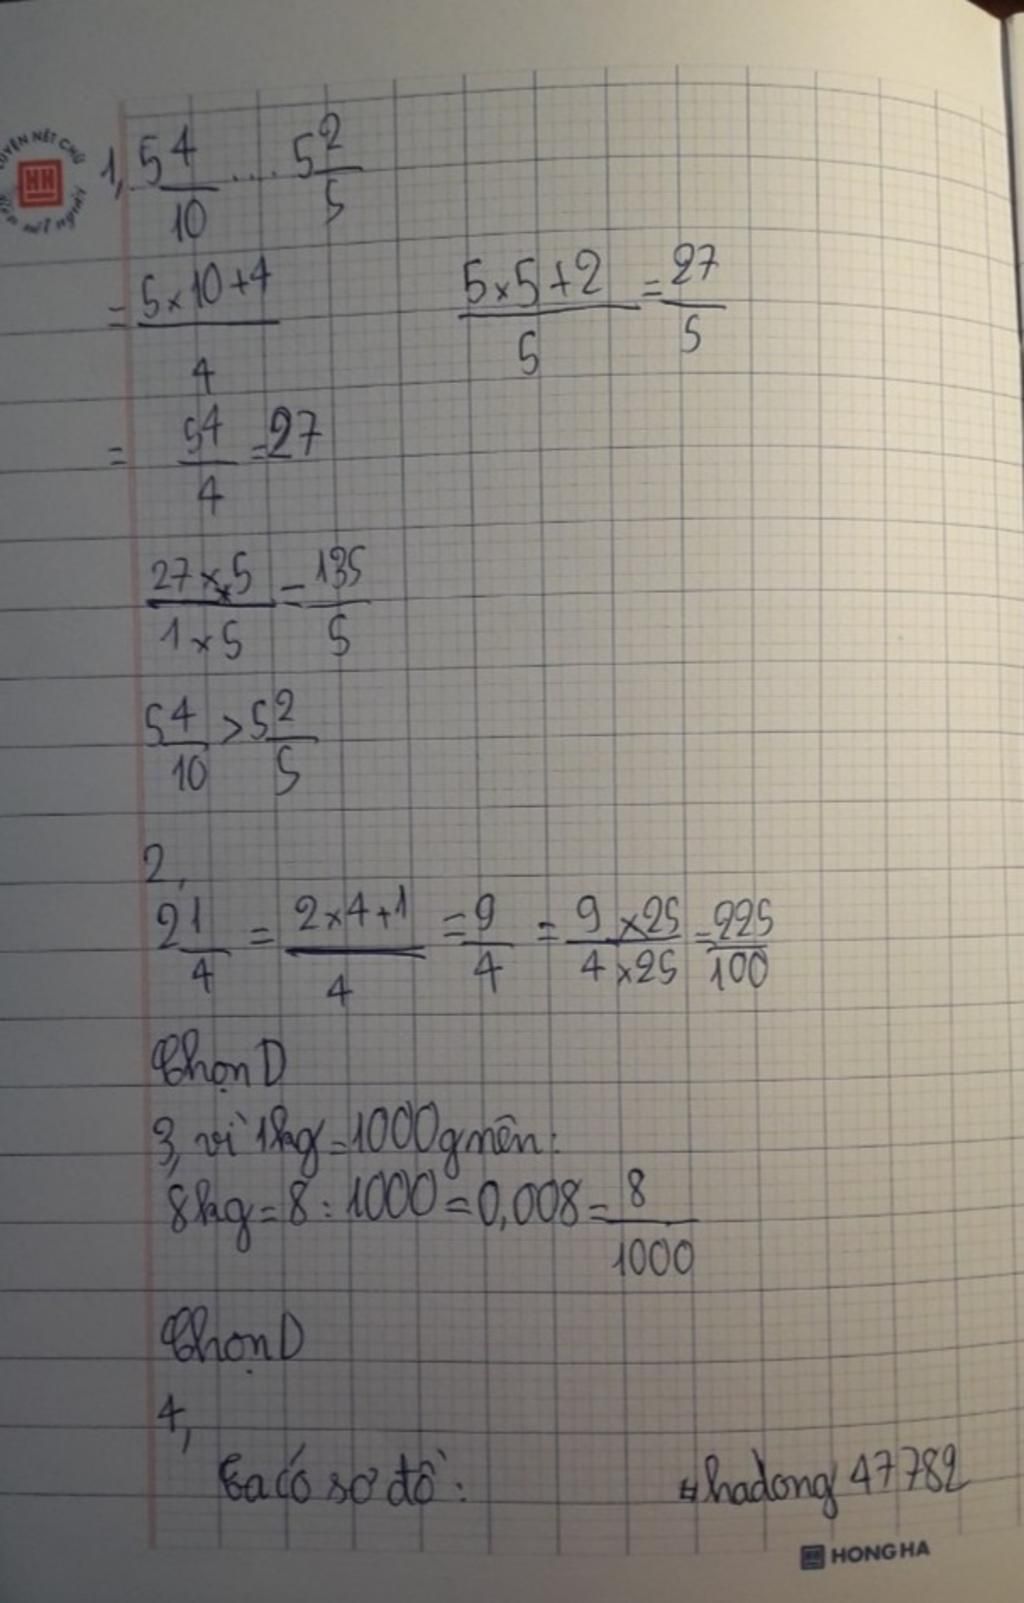 LUYỆN NÉT CHỮ
HH
Rèn nết người
1, 5 4/10 .... 5 2/5
= (5 x 10 + 4)/4   (5 x 5 + 2)/5 = 27/5
= 54/4 = 27
(27 x 5)/(1 x 5) = 135/5
5 4/10 > 5 2/5
2,
2 1/4 = (2 x 4 + 1)/4 = 9/4 = (9 x 25)/(4 x 25) = 225/100
Chọn D
3, vì 1kg = 1000g nên:
8kg = 8 : 1000 = 0,008 = 8/1000
Chọn D
4,
Ta có sơ đồ: #hadong47782
HONG HA